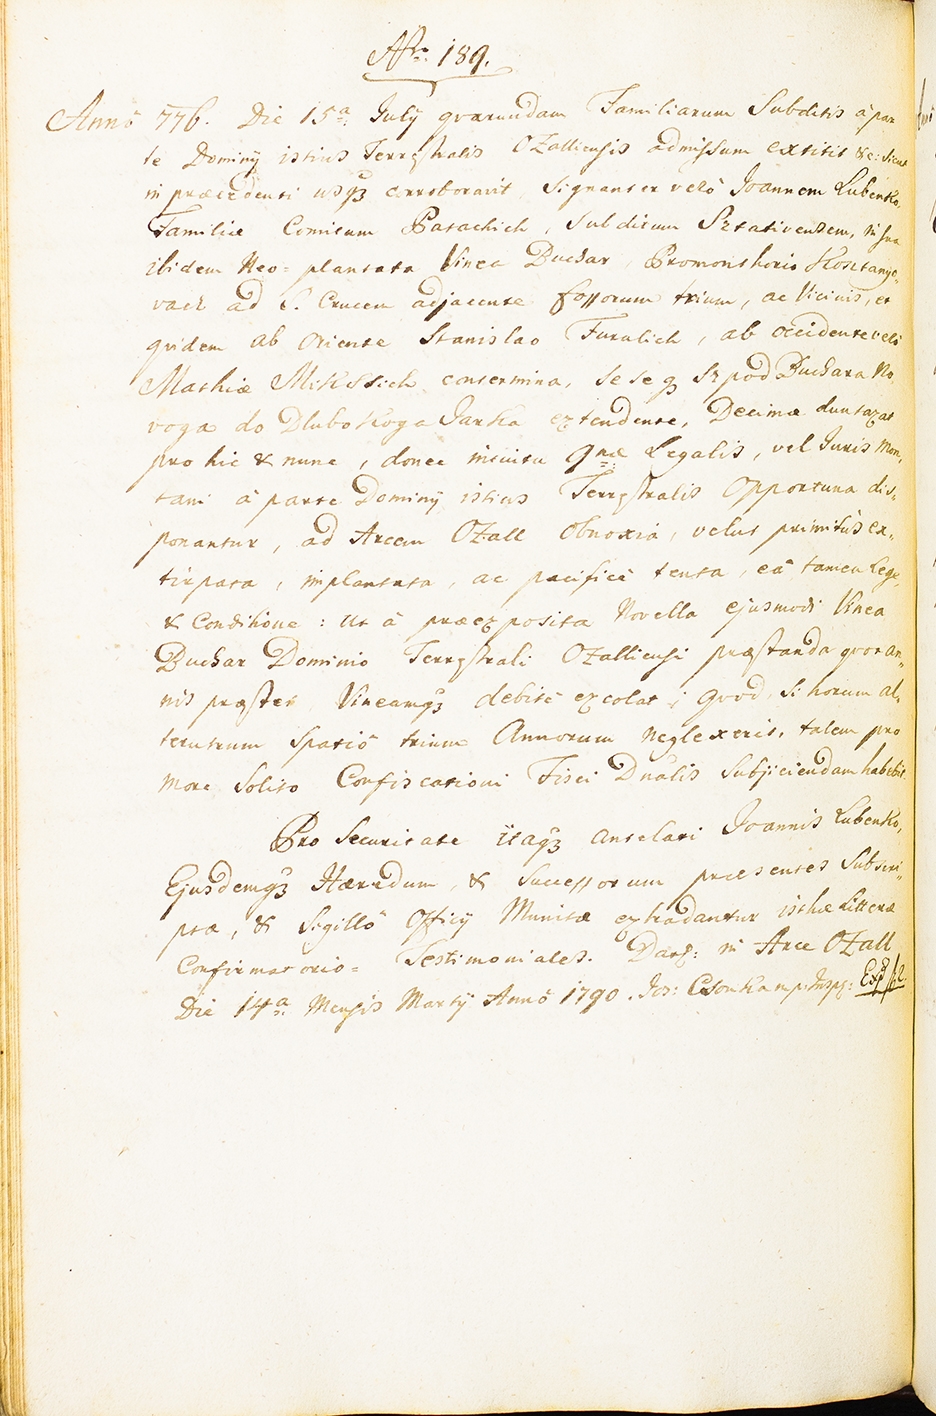 Nro. 189.
Annô 776. Die 15a. Julÿ quarundam Familiarum Subditis â par
te Dominÿ istius Terrestralis Ozalliensis admissum extitit &c: Sicut
in præcedenti usq3 corroboravit, Signanter verô Joannem Lubenko,
Familiæ Comitum Patachich, Subditum Sztativensem, in sua
ibidem Neo-plantata Vinea Buchar, Promonthorio Kosztanye-
vacz ad S. Crucem adjacente fossorum trium, ac Vicinis, et
quidem ab Oriente Stanislao Furalich, ab occidente velô
Mathiæ Mikssich contermina, sese q3 Szpod Buchara No
voga do Dlubokoga Jarka extendente, Decimæ duntaxat
pro hic & nunc, donec incuitu qnæ Legalis, vel Juris Mon-
tani â parte Dominÿ istius Terrestralis Opportuna dis-
ponantur, ad Arcem Ozall Obnoxia, velut primitûs ex-
tirpata, implantata, ac pacificê tenta, eâ tamen Lege,
& Conditione: Ut â præexposita Novella ejusmodi Vinea
Buchar Dominio Terrestrali Ozalliensi præstanda quotan-
nis præstet, Vineamq3 debitê excolat; Quod, si horum al-
terutrum Spatiô trium Annorum neglexerit, talem pro
more Solito Confiscationi Fisci Dnalis Subjiciendam habebit.
Pro Securitate itaq3 antelati Joannis Lubenko,
Ejusdemq3 Hæredum, & Successorum præsentes Subscri-
ptæ, & Sigillô Officÿ Munitæ extradantur isthæ Litteræ
Confirmatorio-Testimoniales. Dat: in Arce Ozall
Die 14a. Mensis Martÿ Annô 1790. Jos: Csonka mp: Insp: